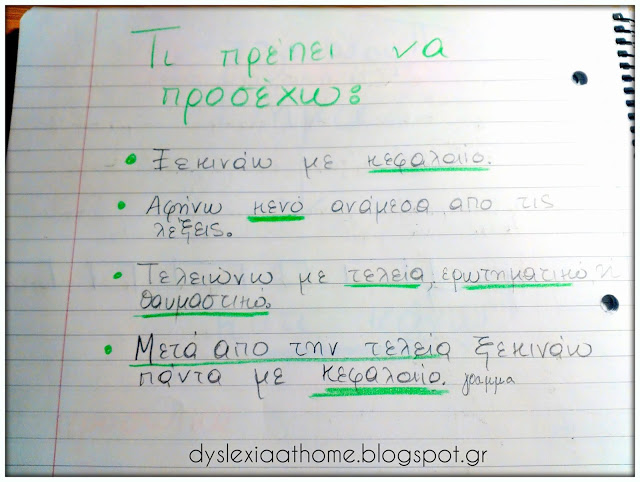 Τι πρέπει να
προσέχω:
• Ξεκινάω με κεφαλαίο.
• Αφήνω κενό ανάμεσα απο τις
λέξεις.
• Τελειώνω με τελεία, ερωτηματικό ή
θαυμαστικό.
• Μετά απο την τελεία ξεκινάω
πάντα με κεφαλαίο. γραμμα
dyslexiaathome.blogspot.gr